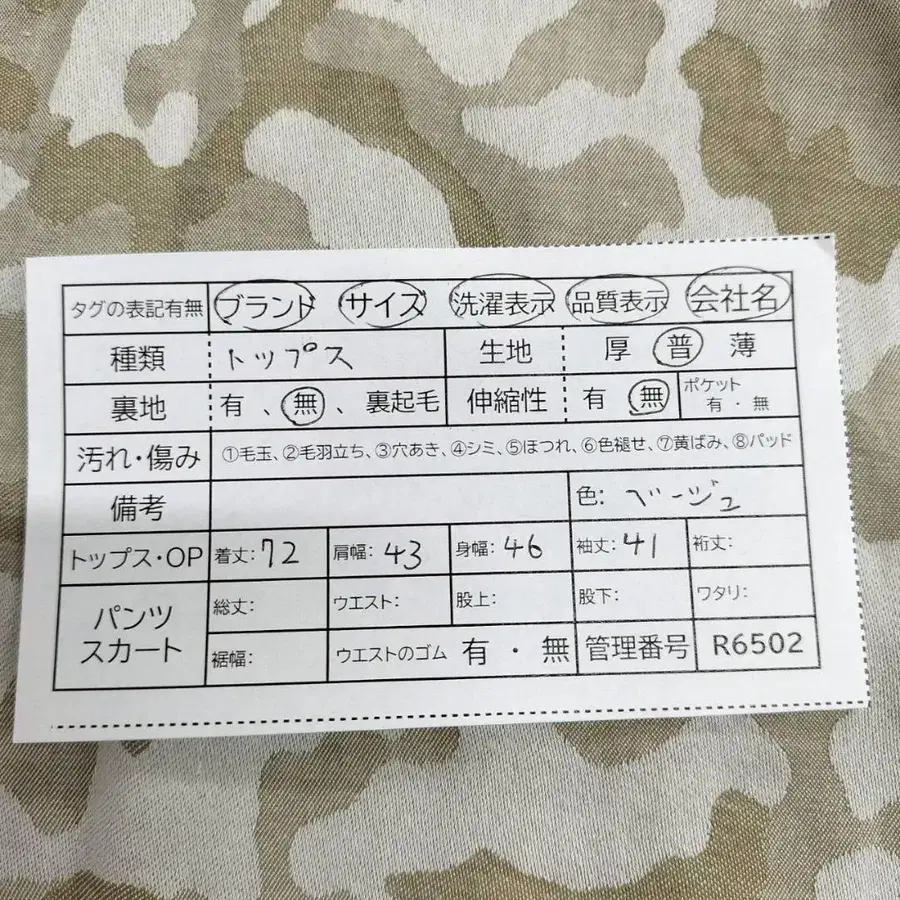 タグの表記有無 ブランド サイズ 洗濯表示 品質表示 会社名
種類 トップス 生地 厚 普 薄
裏地 有、無、裏起毛 伸縮性 有 無 ポケット 有・無
汚れ・傷み ①毛玉、②毛羽立ち、③穴あき、④シミ、⑤ほつれ、⑥色褪せ、⑦黄ばみ、⑧パッド
備考 色: ベージュ
トップス・OP 着丈:72 肩幅:43 身幅:46 袖丈:41 裄丈:
パンツ スカート 総丈: ウエスト: 股上: 股下: ワタリ:
裾幅: ウエストのゴム 有・無 管理番号 R6502